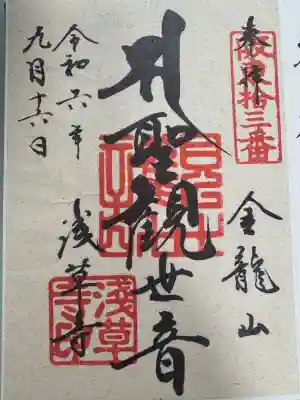 奉拝
坂東拾三番
金龍山
聖観世音
浅草寺
令和六年
九月十六日